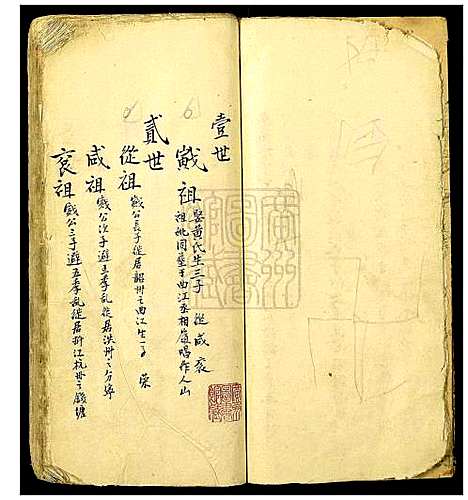 壹世
戩祖 娶黃氏生三子 從咸袞
祖妣同塟于曲江丞相嶺唱作人山
貳世
從祖 戩公長子徙居韶州之曲江生一子 荣
咸祖 戩公次子避五季乱徙居洪州之分寧
袞祖 戩公三子避五季乱徙居浙江杭州之錢塘